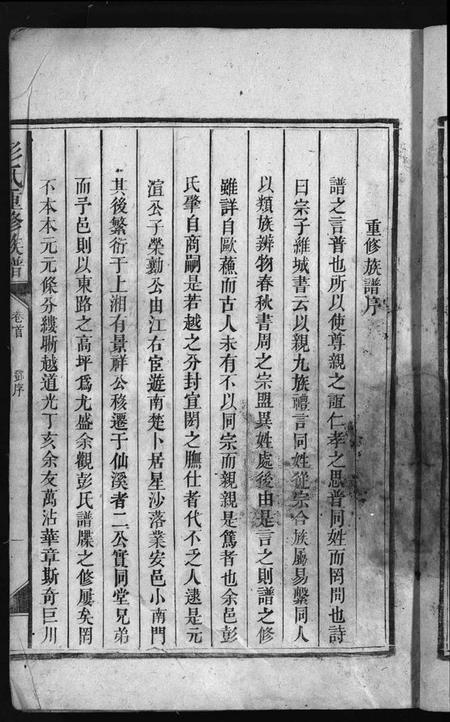 重修族譜序
譜之言普也所以使尊親之誼仁孝之思普同姓而罔間也詩
曰宗子維城書云以親九族禮言同姓從宗合族屬易繫同人
以類族辨物春秋書周之宗盟異姓處後由是言之則譜之修
雖詳自歐蘓而古人未有不以同宗而親親是篤者也余邑彭
氏肇自商嗣是若越之分封宣閎之膴仕者代不乏人逮是元
渲公子榮勳公由江右宦遊南楚卜居星沙落業安邑小南門
其後繁衍于上湘有景祥公移遷于仙溪者二公實同堂兄弟
而予邑則以東路之高坪爲尤盛余觀彭氏譜牒之修屢矣罔
不本本元元條分縷晰越道光丁亥余友萬沾華章斯奇巨川
彭氏重修族譜
卷首
鄧序